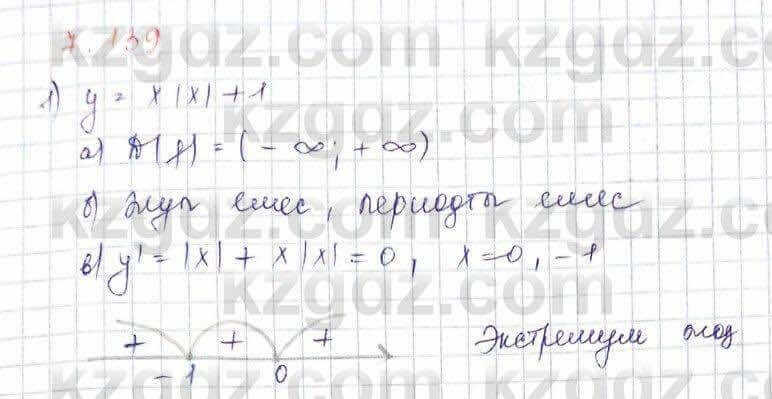 7.139
kzgdz.com kzgdz.com
1) y = x|x|+1
kzgdz.com
а) D(y) = (-∞; +∞)
б) жұп емес, периодты емес
kzgdz.com
в) y' = |x| + x|x| = 0, x=0, -1
kzgdz.com
+ + + Экстремум
-1 0
kzgdz.com kzgdz.com